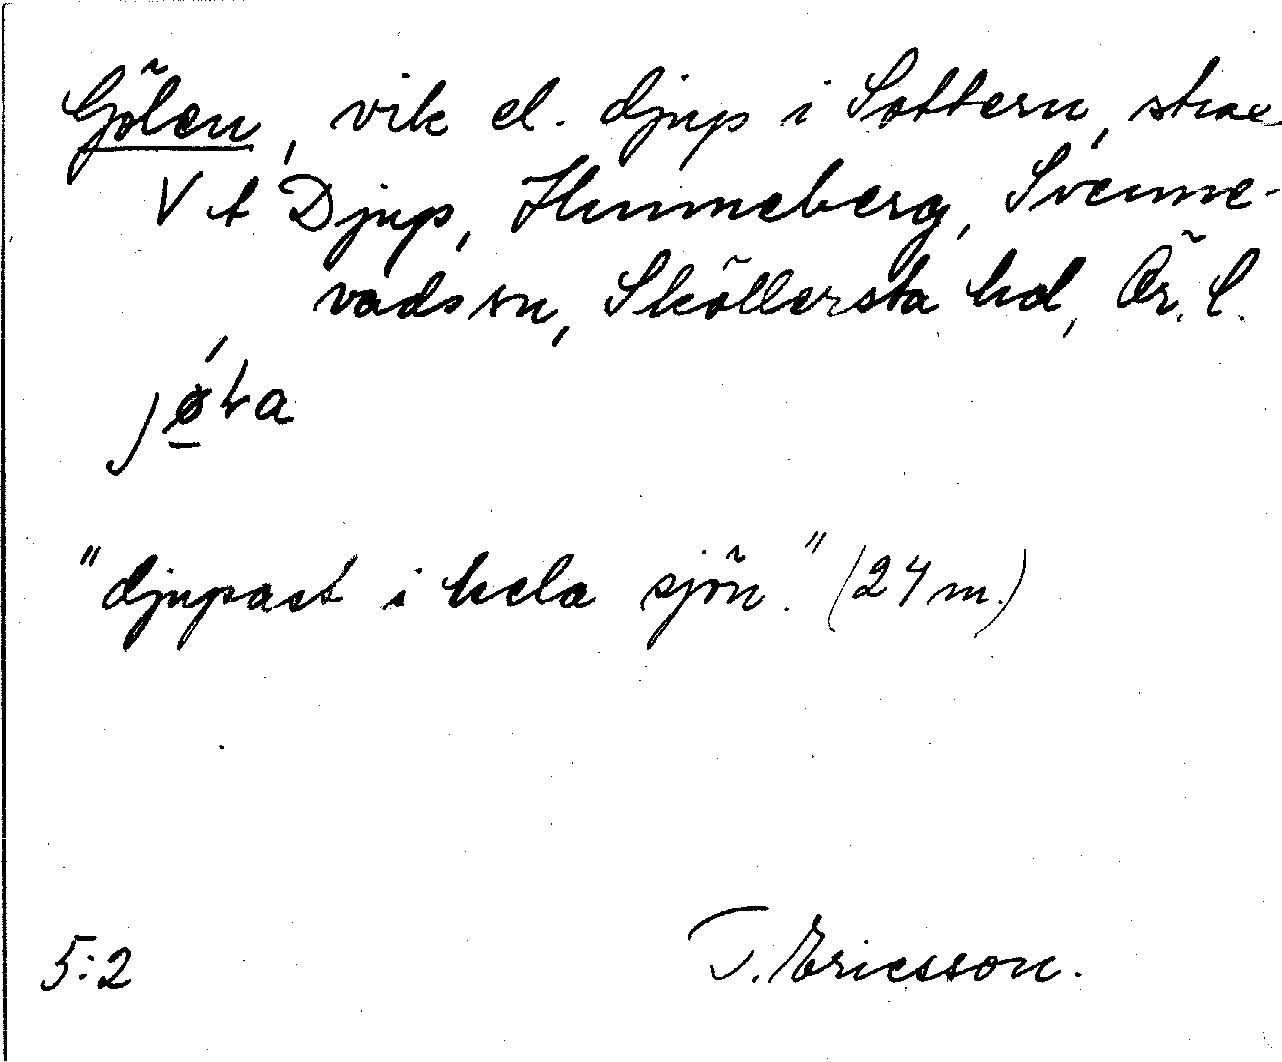 Gölen, vik el. djup i Sottern, strax
V t Djup, Hunneberg, Svenne-
vads sn, Sköllersta hd, Ör. l.
"djupast i hela sjön." (24 m.)
5:2 T. Ericsson.